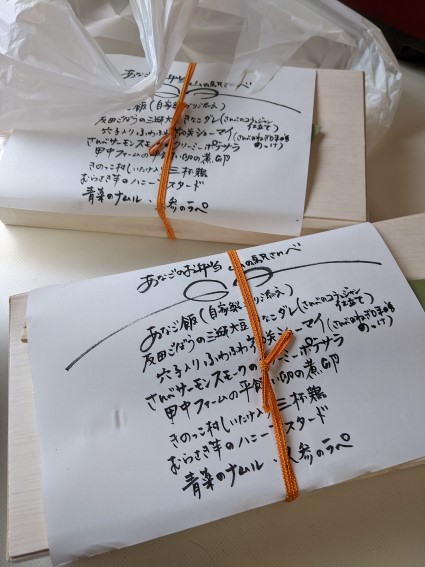 あなごのお弁当
あなご飯(自家製
反田ごぼうの三味大豆きなこダレ(さんべのコラージャン仕立て)
穴子入りふわふわ シューマイ(さんべのねぎ のっけ)
さんべサーモンスモークの クリーミーポテサラ
田中ファームの平飼い卵の煮卵
きのっこ村しいたけ入り三杯鶏
むらさき芋のハニーマスタード
青菜のナムル・人参のラペ
あなごのお弁当
あなご飯(自家製
反田ごぼうの三味大豆きなこダレ(さんべのコラージャン仕立て)
穴子入りふわふわ シューマイ(さんべのねぎ のっけ)
さんべサーモンスモークの クリーミーポテサラ
田中ファームの平飼い卵の煮卵
きのっこ村しいたけ入り三杯鶏
むらさき芋のハニーマスタード
青菜のナムル・人参のラペ